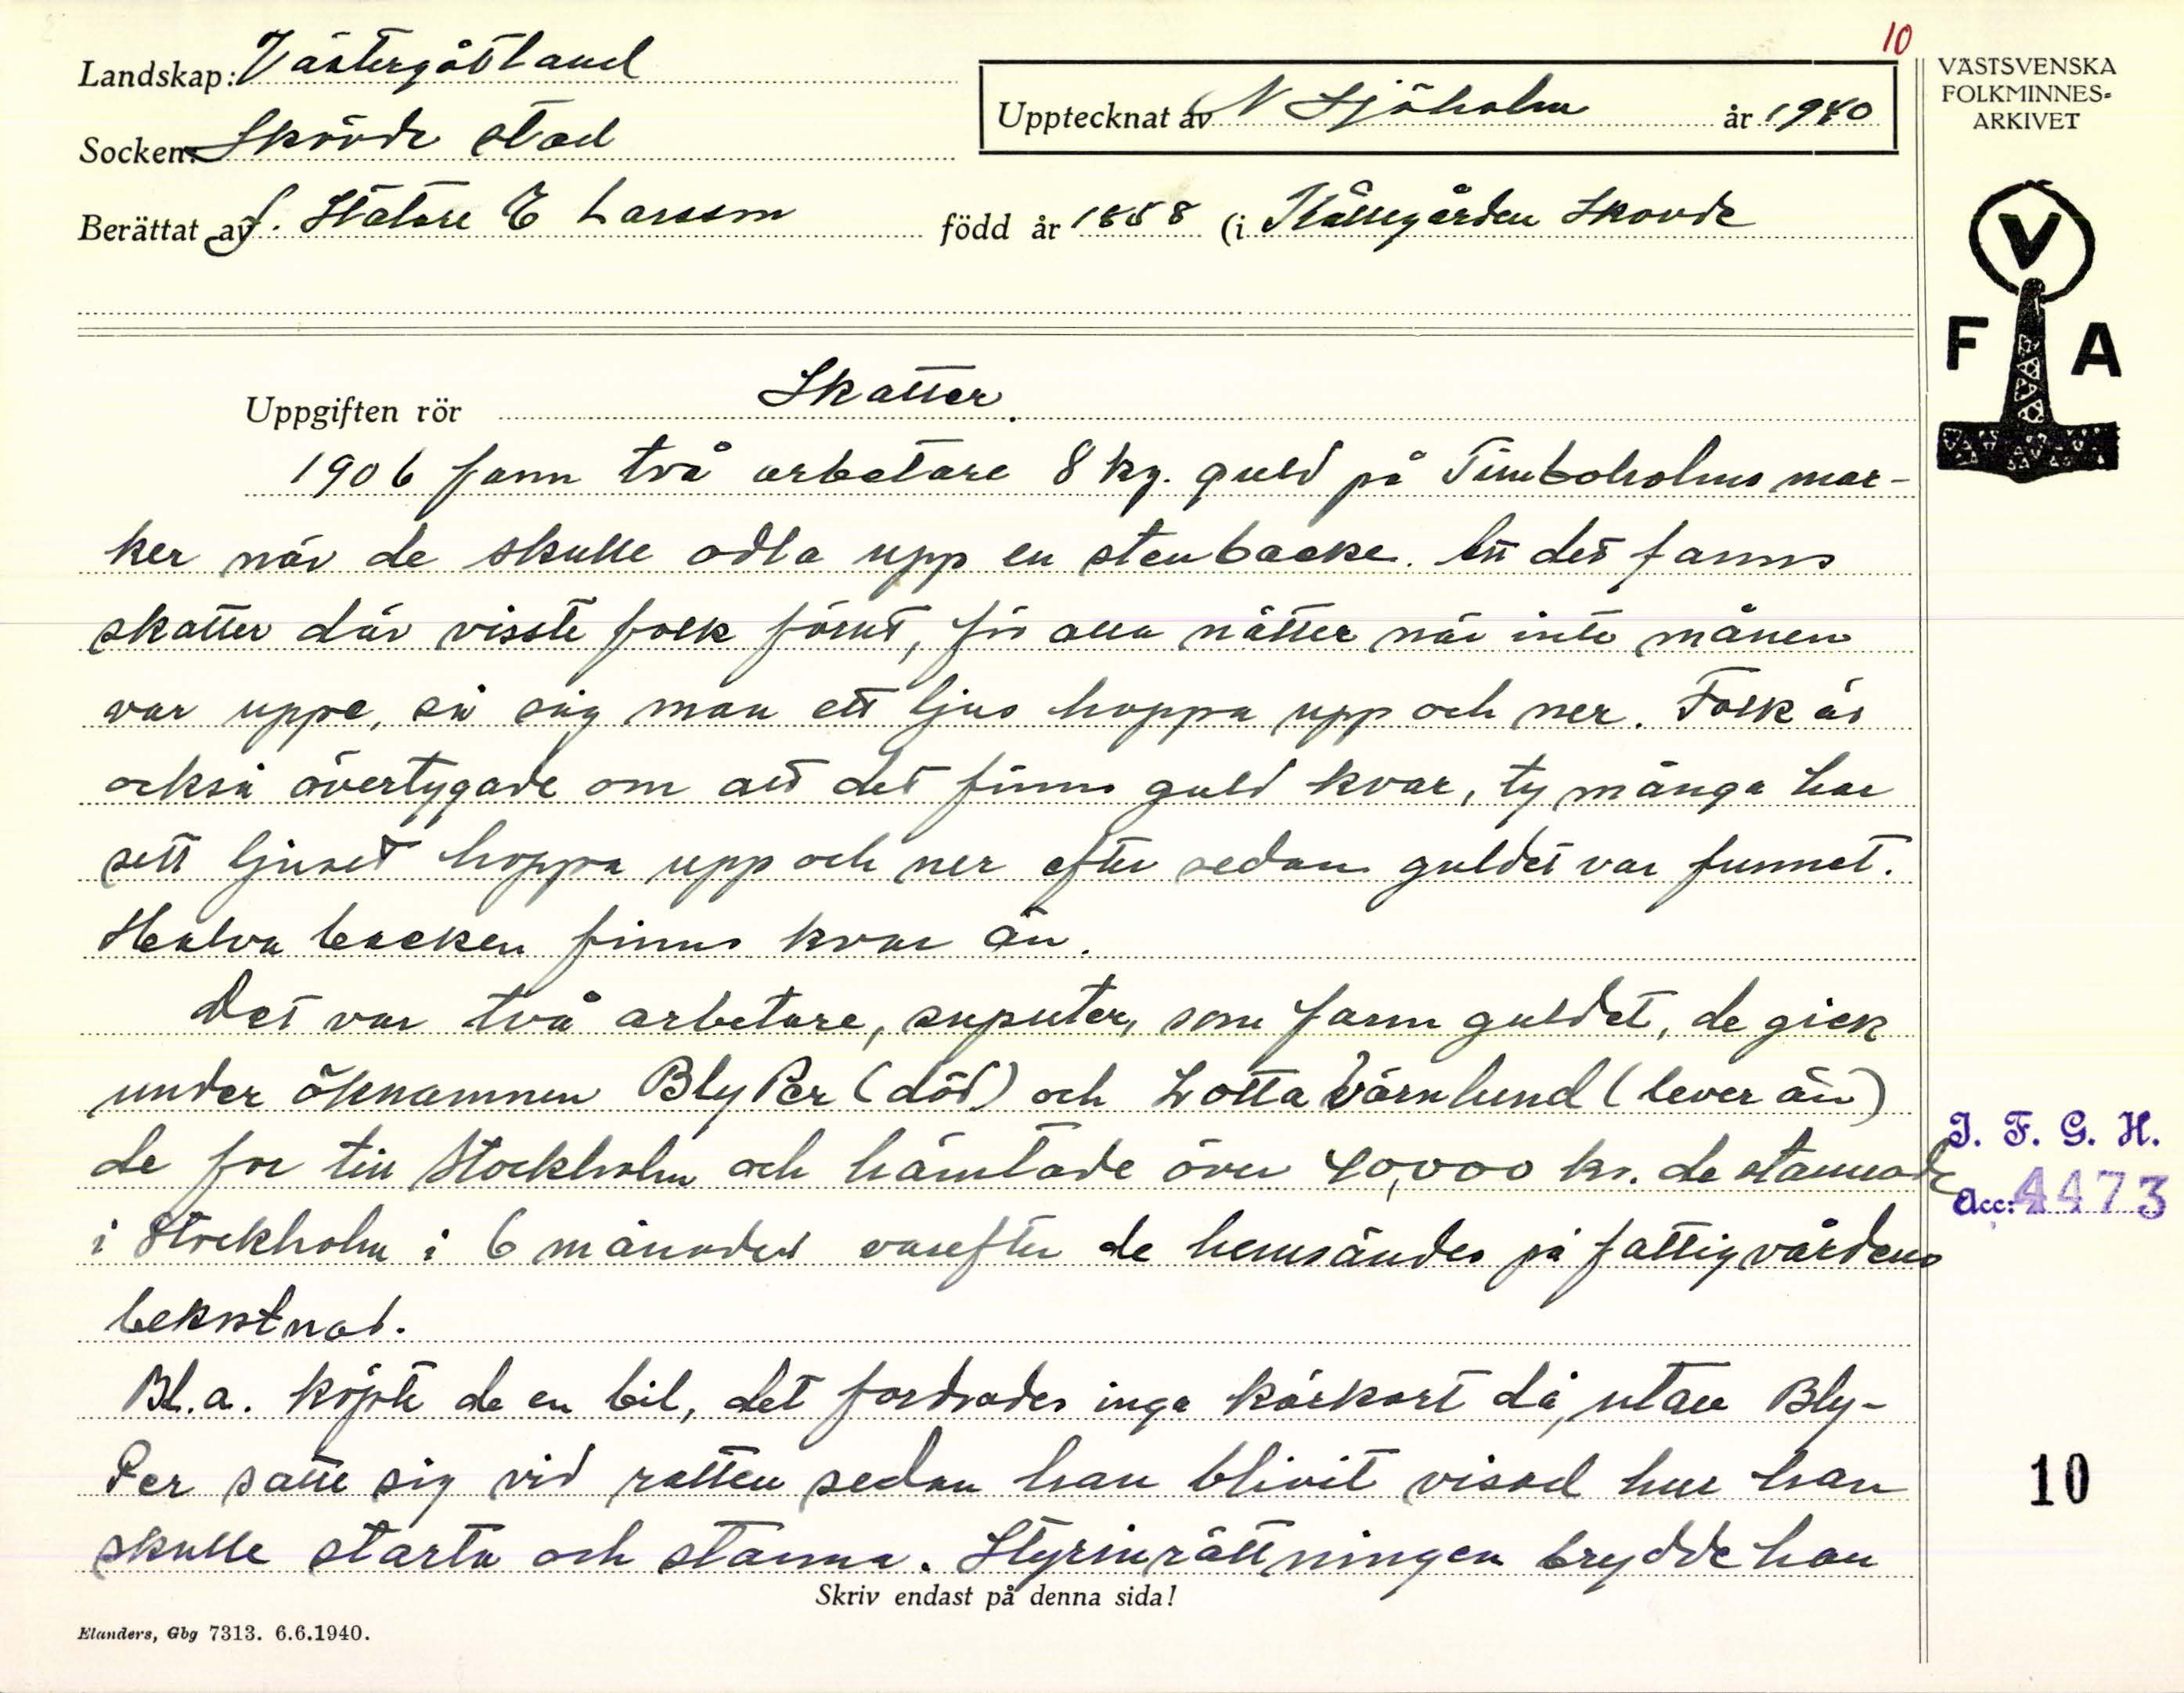 10
Landskap: Västergötland
Socken: Skövde stad
Upptecknat av N Sjöholm år 1940
Berättat av f. Statare E Larsson född år 1858 (i Kållegården Skövde
VÄSTSVENSKA
FOLKMINNES-
ARKIVET
V
F A
Uppgiften rör Skatter.
1906 fann två arbetare 8 kg. guld på Timboholms mar-
ker när de skulle odla upp en stenbacke. Att det fanns
skatter där visste folk förut, för alla nätter när inte månen
var uppe, så såg man ett ljus hoppa upp och ner. Folk är
också övertygade om att det finns guld kvar, ty många har
sett ljuset hoppa upp och ner efter sedan guldet var funnet.
Halva backen finns kvar än.
Det var två arbetare, suputer, som fann guldet, de gick
under öknamnen Bly Per (död) och Lotta Värnlund (lever än)
de for till Stockholm och hämtade över 40,000 kr. de stannade
i Stockholm i 6 månader varefter de hemsändes på fattigvårdens
bekostnad.
Bl.a. köpte de en bil, det fordrades inga körkort då, utan Bly-
Per satte sig vid ratten sedan han blivit visad hur han
skulle starta och stanna. Styrinrättningen brydde han
J. F. G. H.
Acc: 4473
10
Skriv endast på denna sida!
Elanders, Gbg 7313. 6.6.1940.